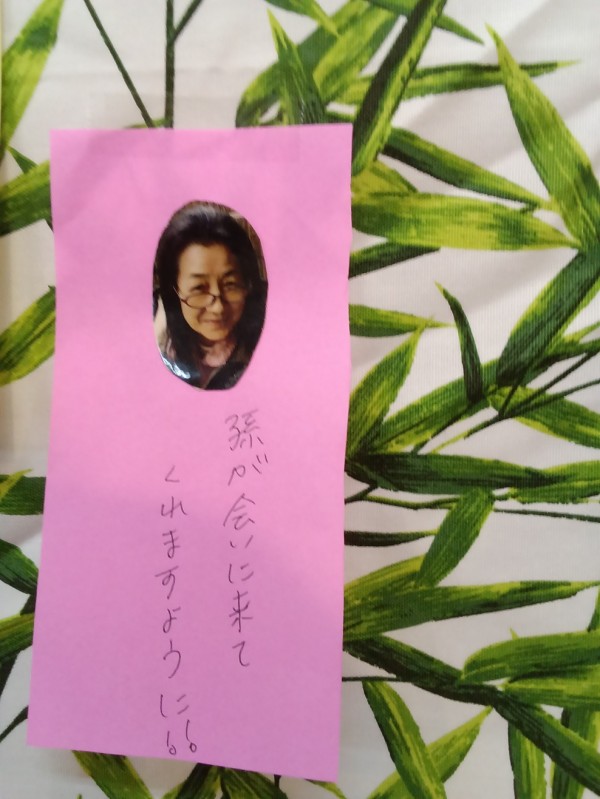 孫が会いに来て
くれますように!!